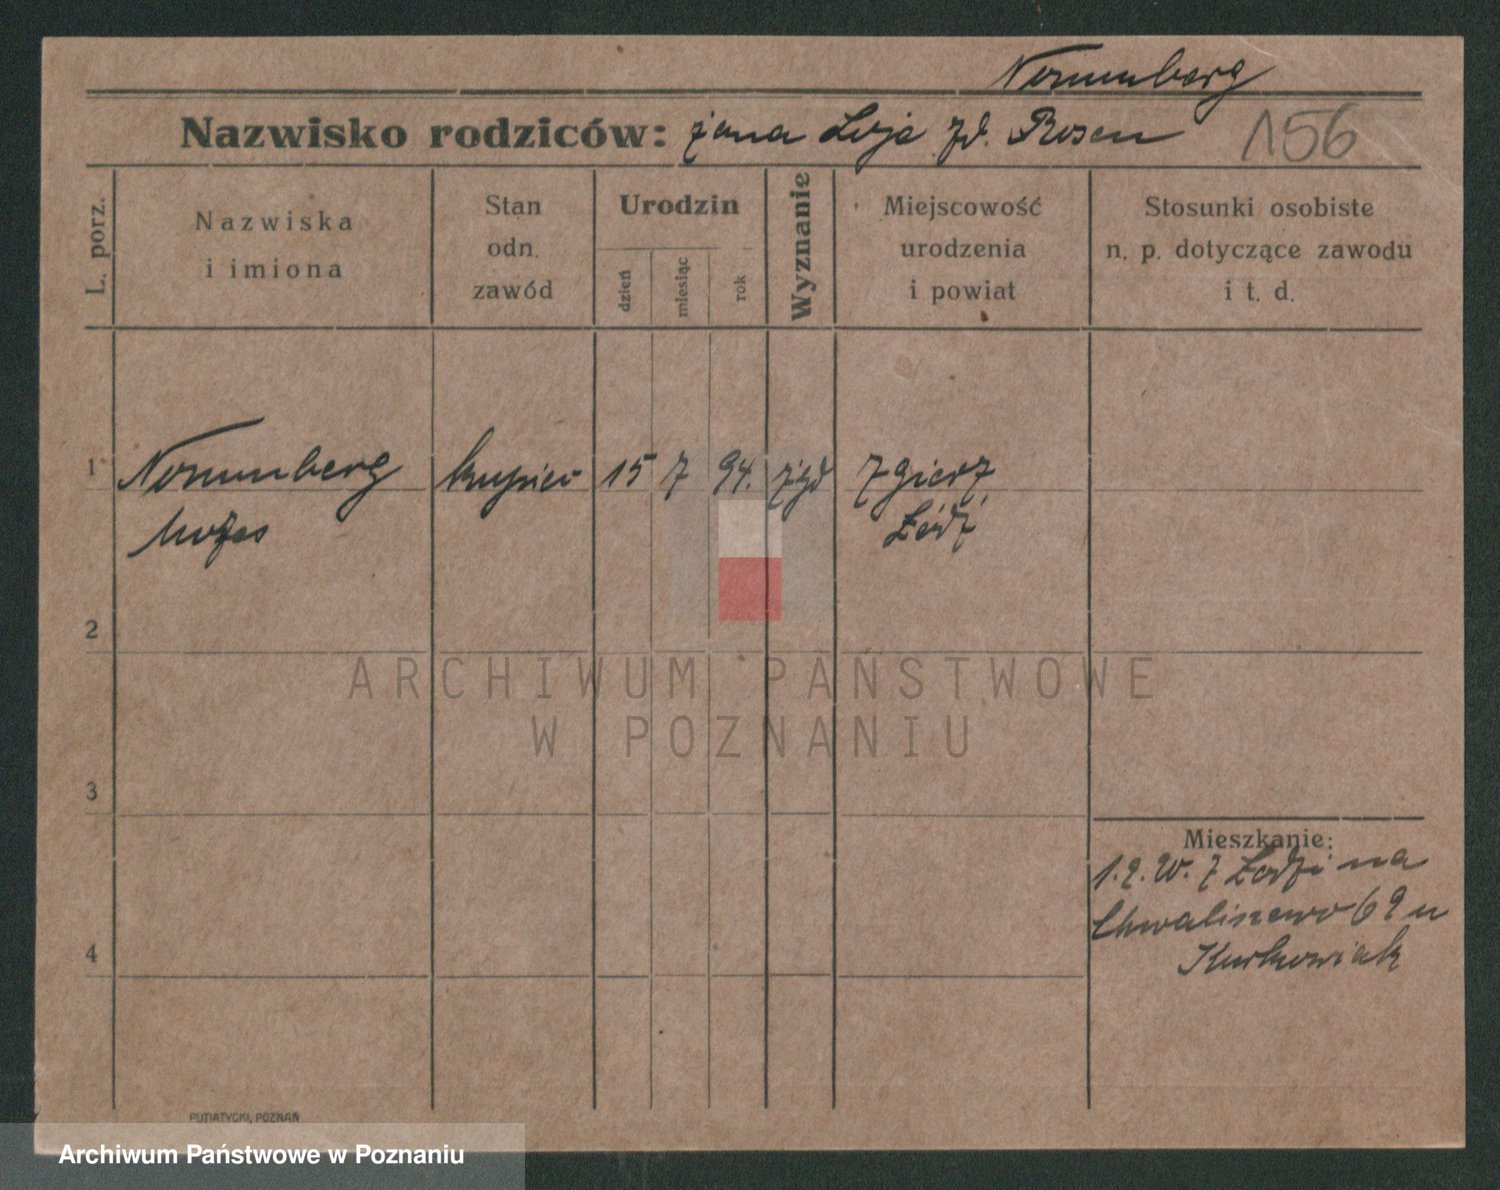 Normmberg
Nazwisko rodziców: żona Loja zd. Rosen 156
L. porz.
Nazwiska
i imiona
Stan
odn.
zawód
Urodzin
dzień
miesiąc
rok
Wyznanie
Miejscowość
urodzenia
i powiat
Stosunki osobiste
n. p. dotyczące zawodu
i t. d.
1 Normmberg kupiec 15 7 94. żyd Zgierz
Mojżes Łódź
2
ARCHIWUM PAŃSTWOWE
W POZNANIU
3
Mieszkanie:
z Łodzi na
Chwaliszewo 69 u
Kurkowiak
4
PUTIATYCKI, POZNAŃ
Archiwum Państwowe w Poznaniu